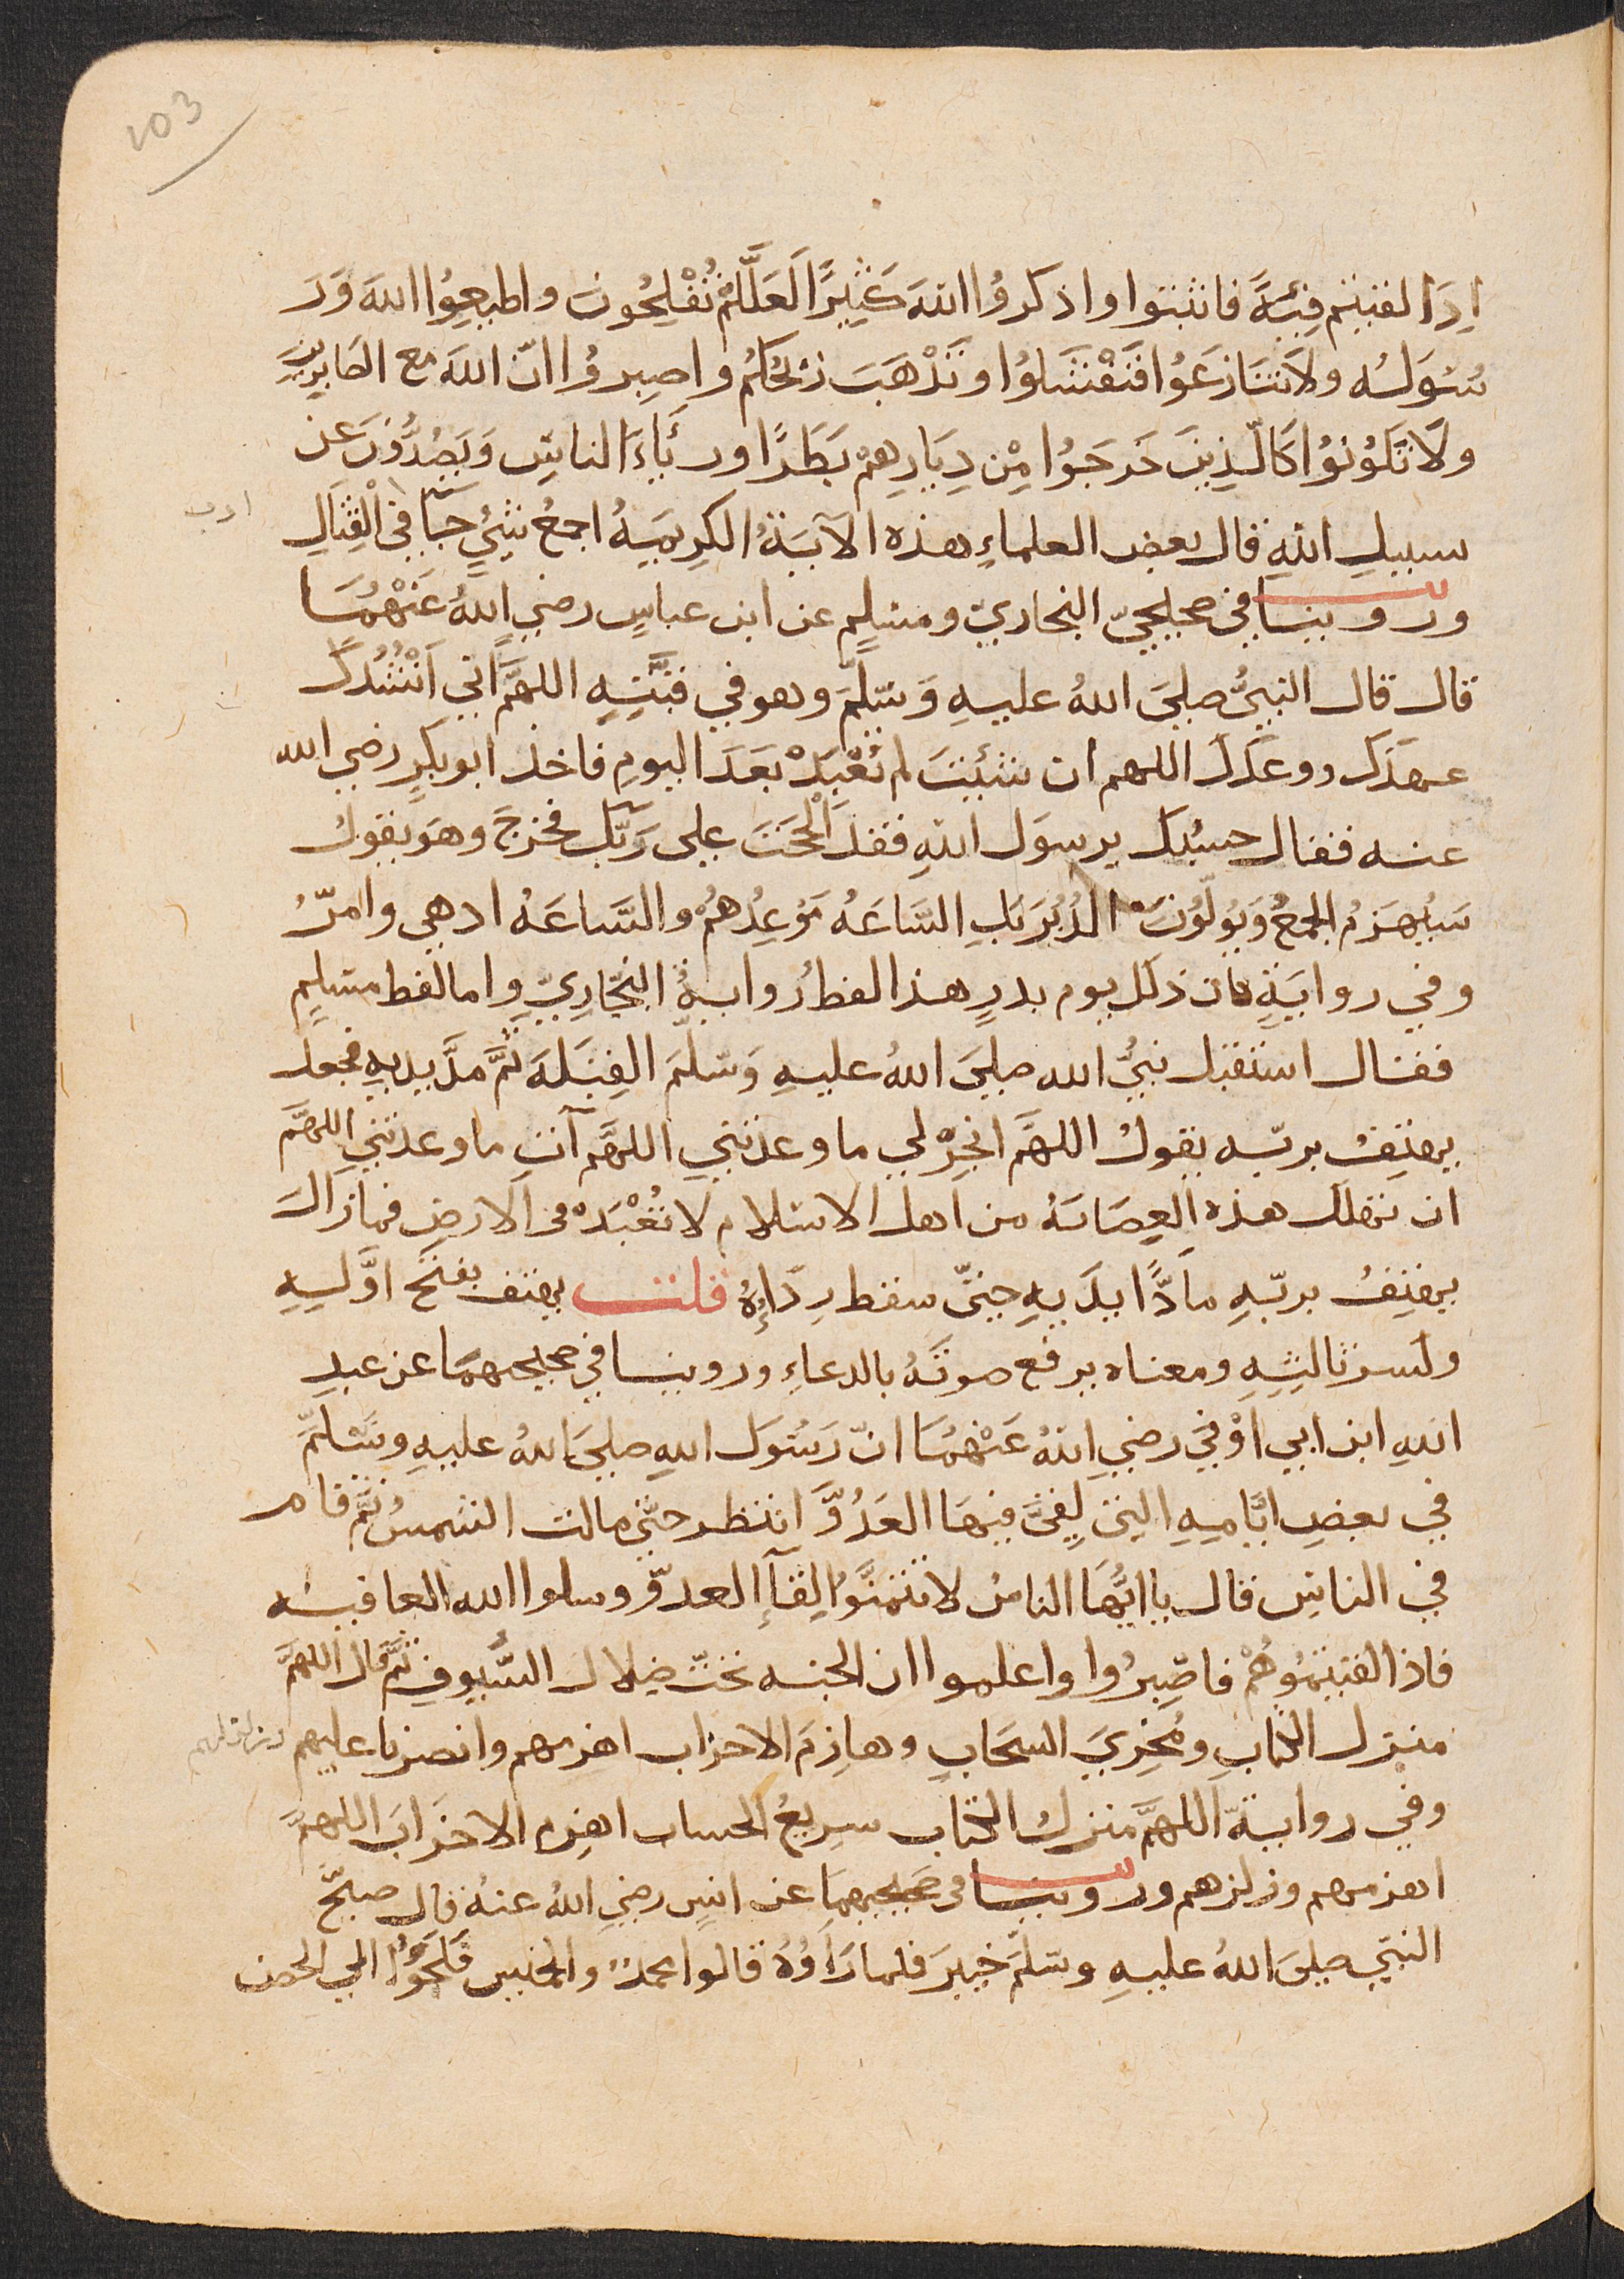 103
اِذَا لقيتم فِئَةً فاثبتوا واذكروُا اللهَ كَثِيرًا لَعَلَّكُمْ تُفْلِحُونَ واطيعِوُا اللهَ وَرَ
سُوَلَه ولاَ تَنَازعَوُا فَتَفْشَلوُا وتَذْهَبَ رِيحُكمُ واصبِروُا انّ اللهَ مع الصَابِرينَ
ولَا تَكُونوُا كَالّذِينَ خَرَجوُا مِنْ دِيَارِهِمْ بَطَرًا ورئَاءَ الناسِ وَيَصُدُّونَ عن
سبيلِ اللهِ قال بعض العلماءِ هذه الآيَةُ الكرِيمَهُ اجمعُ شيْءٍ جآ في الْقِتَالِ
ادب
وروينا في صحيحيّ البخاريّ ومسلمٍ عن ابن عباسٍ رضي اللهُ عَنْهُمَا
قال قال النبيُّ صلىَ اللهُ عليهِ وَسَلّمَ وهو في قبَّتِهِ اللهمَّ اني اَنْشُدُكَ
عهدَكَ ووعَدَكَ اللهم ان شئِيتَ لم تُعْبَدْ بعَدَ اليومِ فاخذ ابو بكرٍ رضي الله
عنه فقال حسبُكَ يرسوَل اللهِ فقد اَلْحَحْتَ على رَبّكَ فخرجَ وهَو يقولُ
سَيُهزَمُ الجمعُ وَيُولّوُنَ الدُبُرَ بَلِ السَّاعَهُ مَوْعِدُهُمْ والسَّاعَهُ ادهى وامرّ
وفي روايَةٍ كان ذلكَ يوم بدرٍ هذا لفظ رُوايةُ البخَّارِيِّ واما لفظ مسلِمٍ
فقال استقبل نبيُّ الله صلىَ اللهُ عليهِ وَسَلّمَ القِبَلَة ثمَّ مدَّ يديهِ فجعلَ
يهتِفُ بربّه يقولُ اللهمَّ انجِزْ لي ما وعدتني اللهمَّ آتِ ما وعدتني اللهمَّ
ان تهلك هذه العِصَابَهُ من اهل الاسلام لا تُعْبَدْ في الارضِ فما زالَ
يهتِفُ بربّهِ مادًّا يدَيهِ حتىّ سقط رِدَاؤُهُ قلت يهتف بفتحَ اوَّلِهِ
وكسر ثالِثِهِ ومعناه يرفع صوتَهُ بالدعاءِ وروينا في صحيحهما عن عبدِ
اللهِ ابن ابي اَوْفى رضي اللهُ عَنْهُمَا انّ رَسُوَل اللهِ صلىَ اللهُ عليهِ وسَلّمَ
في بعضِ ايَّامِهِ التي لِقىَ فيهَا العَدُوَّ انتظر حتّى مالت الشمسُ ثمَّ قام
في الناسِ قال ياايُّهَا الناسُ لا تتمنَّوْا لِقآءَ العدوّ وسلوا الله العافيه
فاذا لقيتموُهُمْ فاصْبِرُوا واعلموا ان الجنه تحت ضلال السُّيوفِ ثمَّ قال اللهمَّ
منزل الكتابِ ومُجْرِيَ السحَابِ وهازِمَ الاحزاب اهزمهم وانصرنا عليهم
وفي روايةٍ اللهمَّ منزلُ الكتاب سرِيعُ الحساب اهزِم الاحزَابَ اللهمَّ
اهزمهم وزلزهم وروينا في صَحيحيهِمَا عن انسٍ رضي اللهُ عنهُ قال صبحَّ
النبّي صلىَ اللهُ عليهِ وسَلّمَ خيبرَ فلما رَاَوْهُ قالوا محمدٌ والخميس فَلَجَؤُا الي الحصن